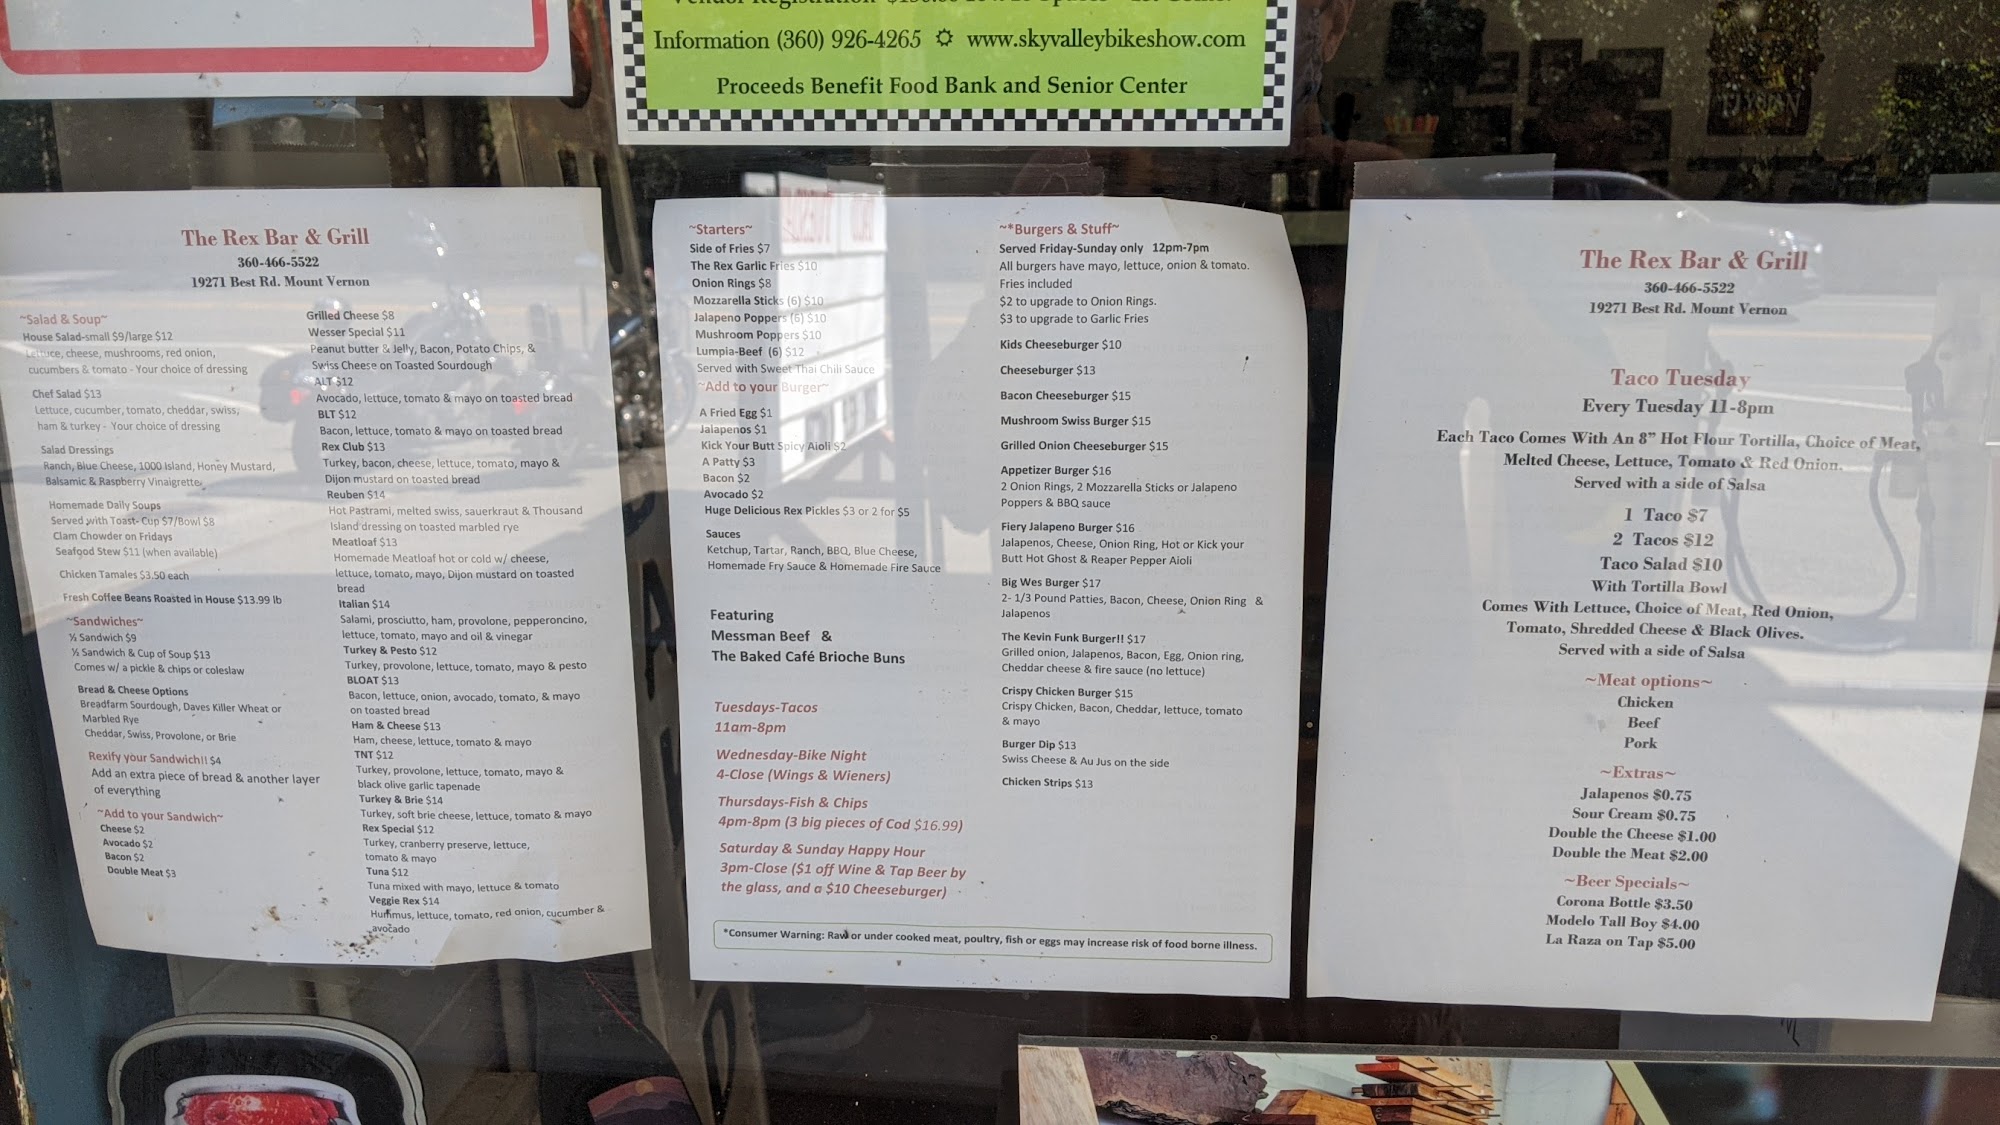 Information (360) 926-4265 ☼ www.skyvalleybikeshow.com
Proceeds Benefit Food Bank and Senior Center
The Rex Bar & Grill
360-466-5522
19271 Best Rd. Mount Vernon
~Salad & Soup~
House Salad-small $9/large $12
Lettuce, cheese, mushrooms, red onion,
cucumbers & tomato - Your choice of dressing
Chef Salad $13
Lettuce, cucumber, tomato, cheddar, swiss,
ham & turkey - Your choice of dressing
Salad Dressings
Ranch, Blue Cheese, 1000 Island, Honey Mustard,
Balsamic & Raspberry Vinaigrette
Homemade Daily Soups
Served with Toast- Cup $7/Bowl $8
Clam Chowder on Fridays
Seafood Stew $11 (when available)
Chicken Tamales $3.50 each
Fresh Coffee Beans Roasted in House $13.99 lb
~Sandwiches~
½ Sandwich $9
½ Sandwich & Cup of Soup $13
Comes w/ a pickle & chips or coleslaw
Bread & Cheese Options
Breadfarm Sourdough, Daves Killer Wheat or
Marbled Rye
Cheddar, Swiss, Provolone, or Brie
Rexify your Sandwich!! $4
Add an extra piece of bread & another layer
of everything
~Add to your Sandwich~
Cheese $2
Avocado $2
Bacon $2
Double Meat $3
Grilled Cheese $8
Wesser Special $11
Peanut butter & Jelly, Bacon, Potato Chips, &
Swiss Cheese on Toasted Sourdough
ALT $12
Avocado, lettuce, tomato & mayo on toasted bread
BLT $12
Bacon, lettuce, tomato & mayo on toasted bread
Rex Club $13
Turkey, bacon, cheese, lettuce, tomato, mayo &
Dijon mustard on toasted bread
Reuben $14
Hot Pastrami, melted swiss, sauerkraut & Thousand
Island dressing on toasted marbled rye
Meatloaf $13
Homemade Meatloaf hot or cold w/ cheese,
lettuce, tomato, mayo, Dijon mustard on toasted
bread
Italian $14
Salami, prosciutto, ham, provolone, pepperoncino,
lettuce, tomato, mayo and oil & vinegar
Turkey & Pesto $12
Turkey, provolone, lettuce, tomato, mayo & pesto
BLOAT $13
Bacon, lettuce, onion, avocado, tomato, & mayo
on toasted bread
Ham & Cheese $13
Ham, cheese, lettuce, tomato & mayo
TNT $12
Turkey, provolone, lettuce, tomato, mayo &
black olive garlic tapenade
Turkey & Brie $14
Turkey, soft brie cheese, lettuce, tomato & mayo
Rex Special $12
Turkey, cranberry preserve, lettuce,
tomato & mayo
Tuna $12
Tuna mixed with mayo, lettuce & tomato
Veggie Rex $14
Hummus, lettuce, tomato, red onion, cucumber &
avocado
~Starters~
Side of Fries $7
The Rex Garlic Fries $10
Onion Rings $8
Mozzarella Sticks (6) $10
Jalapeno Poppers (6) $10
Mushroom Poppers $10
Lumpia-Beef (6) $12
Served with Sweet Thai Chili Sauce
~Add to your Burger~
A Fried Egg $1
Jalapenos $1
Kick Your Butt Spicy Aioli $2
A Patty $3
Bacon $2
Avocado $2
Huge Delicious Rex Pickles $3 or 2 for $5
Sauces
Ketchup, Tartar, Ranch, BBQ, Blue Cheese,
Homemade Fry Sauce & Homemade Fire Sauce
Featuring
Messman Beef &
The Baked Café Brioche Buns
Tuesdays-Tacos
11am-8pm
Wednesday-Bike Night
4-Close (Wings & Wieners)
Thursdays-Fish & Chips
4pm-8pm (3 big pieces of Cod $16.99)
Saturday & Sunday Happy Hour
3pm-Close ($1 off Wine & Tap Beer by
the glass, and a $10 Cheeseburger)
~*Burgers & Stuff~
Served Friday-Sunday only 12pm-7pm
All burgers have mayo, lettuce, onion & tomato.
Fries included
$2 to upgrade to Onion Rings.
$3 to upgrade to Garlic Fries
Kids Cheeseburger $10
Cheeseburger $13
Bacon Cheeseburger $15
Mushroom Swiss Burger $15
Grilled Onion Cheeseburger $15
Appetizer Burger $16
2 Onion Rings, 2 Mozzarella Sticks or Jalapeno
Poppers & BBQ sauce
Fiery Jalapeno Burger $16
Jalapenos, Cheese, Onion Ring, Hot or Kick your
Butt Hot Ghost & Reaper Pepper Aioli
Big Wes Burger $17
2- 1/3 Pound Patties, Bacon, Cheese, Onion Ring &
Jalapenos
The Kevin Funk Burger!! $17
Grilled onion, Jalapenos, Bacon, Egg, Onion ring,
Cheddar cheese & fire sauce (no lettuce)
Crispy Chicken Burger $15
Crispy Chicken, Bacon, Cheddar, lettuce, tomato
& mayo
Burger Dip $13
Swiss Cheese & Au Jus on the side
Chicken Strips $13
*Consumer Warning: Raw or under cooked meat, poultry, fish or eggs may increase risk of food borne illness.
The Rex Bar & Grill
360-466-5522
19271 Best Rd. Mount Vernon
Taco Tuesday
Every Tuesday 11-8pm
Each Taco Comes With An 8” Hot Flour Tortilla, Choice of Meat,
Melted Cheese, Lettuce, Tomato & Red Onion.
Served with a side of Salsa
1 Taco $7
2 Tacos $12
Taco Salad $10
With Tortilla Bowl
Comes With Lettuce, Choice of Meat, Red Onion,
Tomato, Shredded Cheese & Black Olives.
Served with a side of Salsa
~Meat options~
Chicken
Beef
Pork
~Extras~
Jalapenos $0.75
Sour Cream $0.75
Double the Cheese $1.00
Double the Meat $2.00
~Beer Specials~
Corona Bottle $3.50
Modelo Tall Boy $4.00
La Raza on Tap $5.00